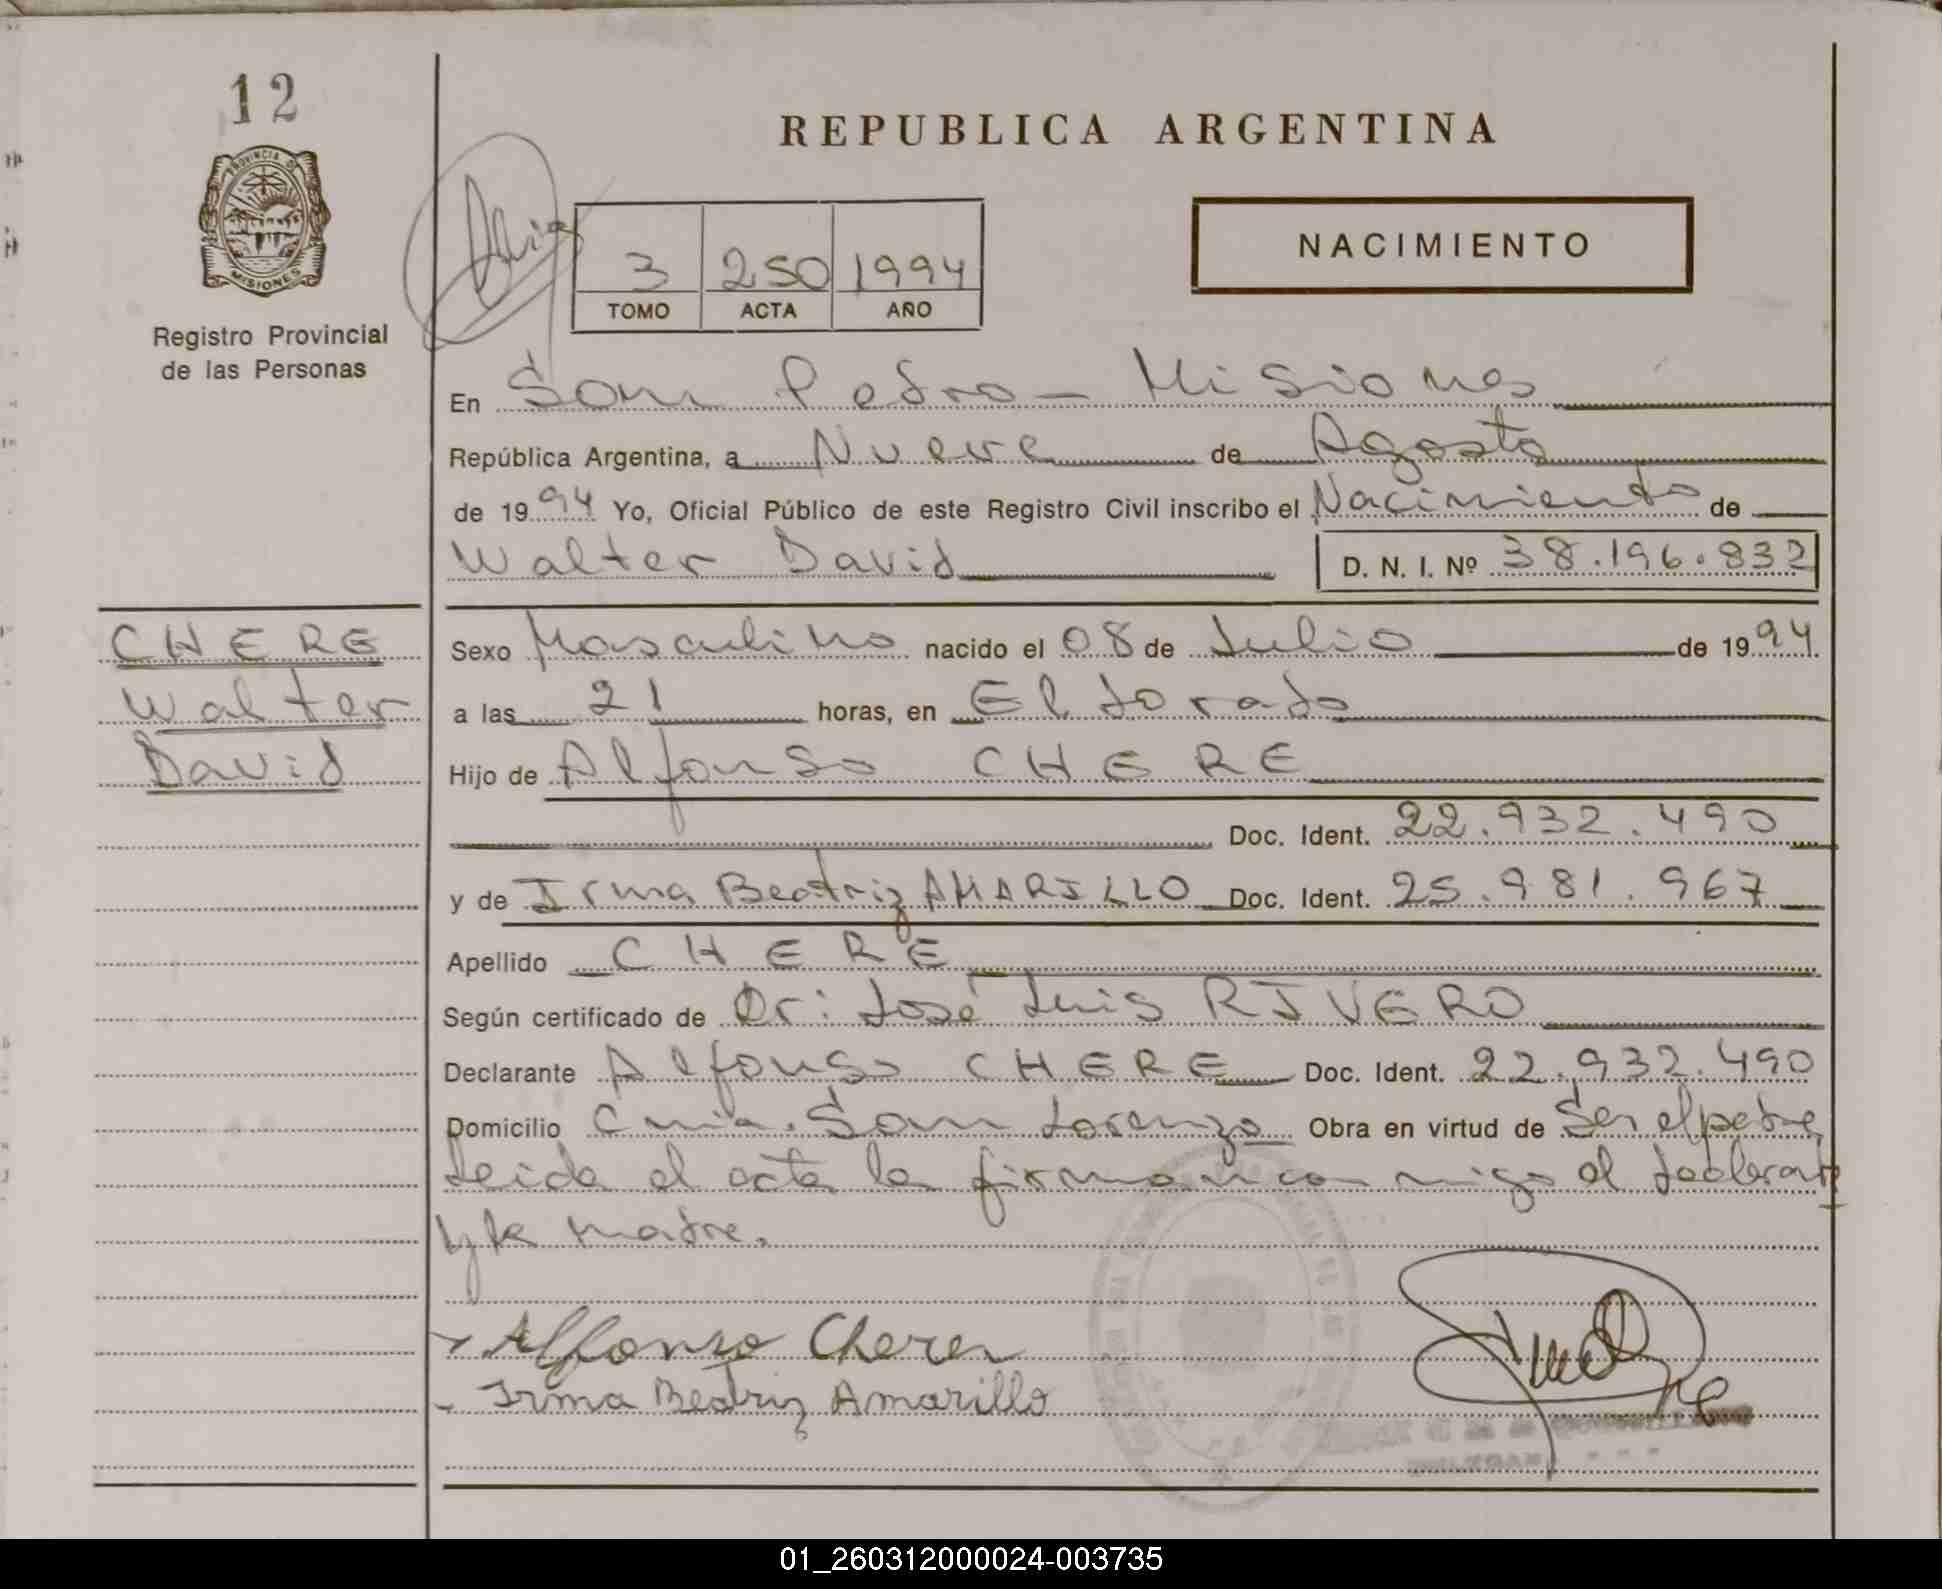 12
PROVINCIA DE
MISIONES
Registro Provincial
de las Personas
REPUBLICA ARGENTINA
3 250 1994
TOMO ACTA AÑO
NACIMIENTO
En San Pedro - Misiones
República Argentina, a Nueve de Agosto
de 1994 Yo, Oficial Público de este Registro Civil inscribo el Nacimiento de
Walter David D. N. I. Nº 38.196.832
CHERE
Walter
David
Sexo Masculino nacido el 08 de Julio de 1994
a las 21 horas, en Eldorado
Hijo de Alfonso CHERE
Doc. Ident. 22.932.490
y de Irma Beatriz AMARILLO Doc. Ident. 25.981.967
Apellido CHERE
Según certificado de Dr: José Luis RIVERO
Declarante Alfonso CHERE Doc. Ident. 22.932.490
Domicilio Cnia. San Lorenzo Obra en virtud de Ser el padre
Leida el acta la firman con migo el declarante
y la madre.
Alfonso Cherer
Irma Beatriz Amarillo
01_260312000024-003735